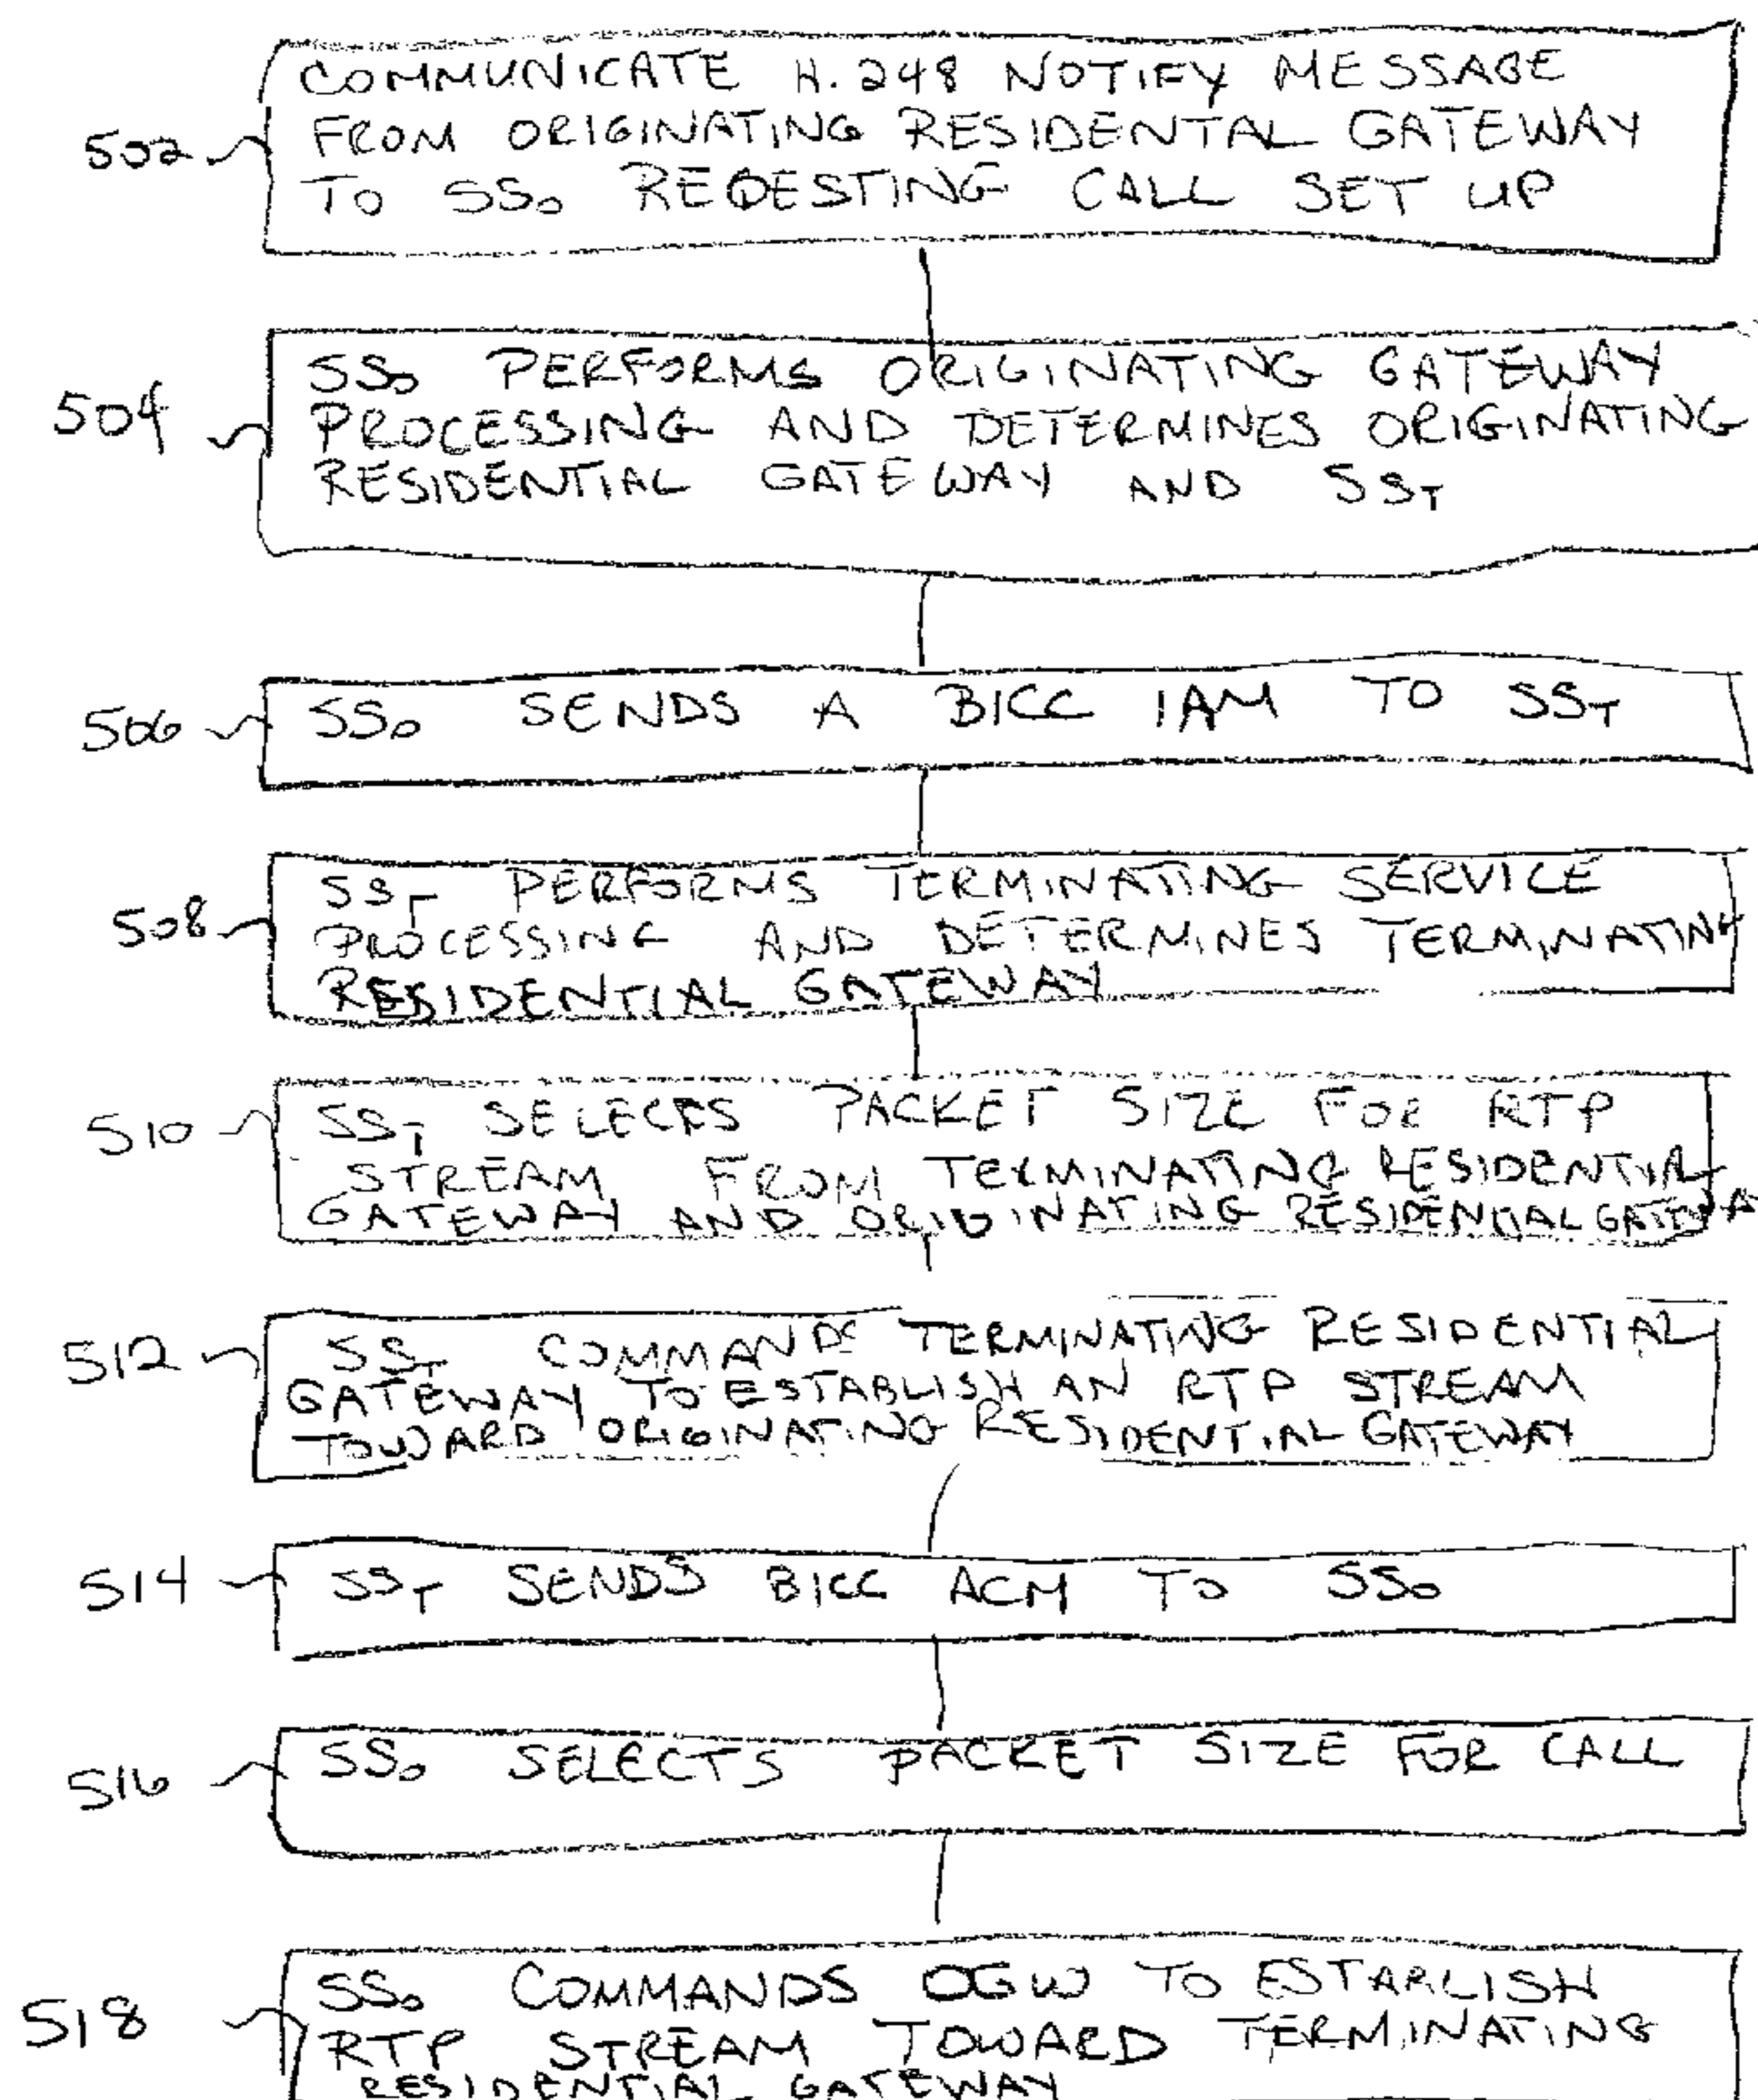 502
COMMUNICATE H.248 NOTIFY MESSAGE
FROM ORIGINATING RESIDENTAL GATEWAY
TO SSo REQESTING CALL SET UP
504
SSo PERFORMS ORIGINATING GATEWAY
PROCESSING AND DETERMINES ORIGINATING
RESIDENTIAL GATEWAY AND SST
506
SSo SENDS A BICC IAM TO SST
508
SST PERFORMS TERMINATING SERVICE
PROCESSING AND DETERMINES TERMINATING
RESIDENTIAL GATEWAY
510
SST SELECTS PACKET SIZE FOR RTP
STREAM FROM TERMINATING RESIDENTIAL
GATEWAY AND ORIGINATING RESIDENTIAL GATEWAY
512
SST COMMANDS TERMINATING RESIDENTIAL
GATEWAY TO ESTABLISH AN RTP STREAM
TOWARD ORIGINATING RESIDENTIAL GATEWAY
514
SST SENDS BICC ACM TO SSo
516
SSo SELECTS PACKET SIZE FOR CALL
518
SSo COMMANDS OGW TO ESTABLISH
RTP STREAM TOWARD TERMINATING
RESIDENTIAL GATEWAY